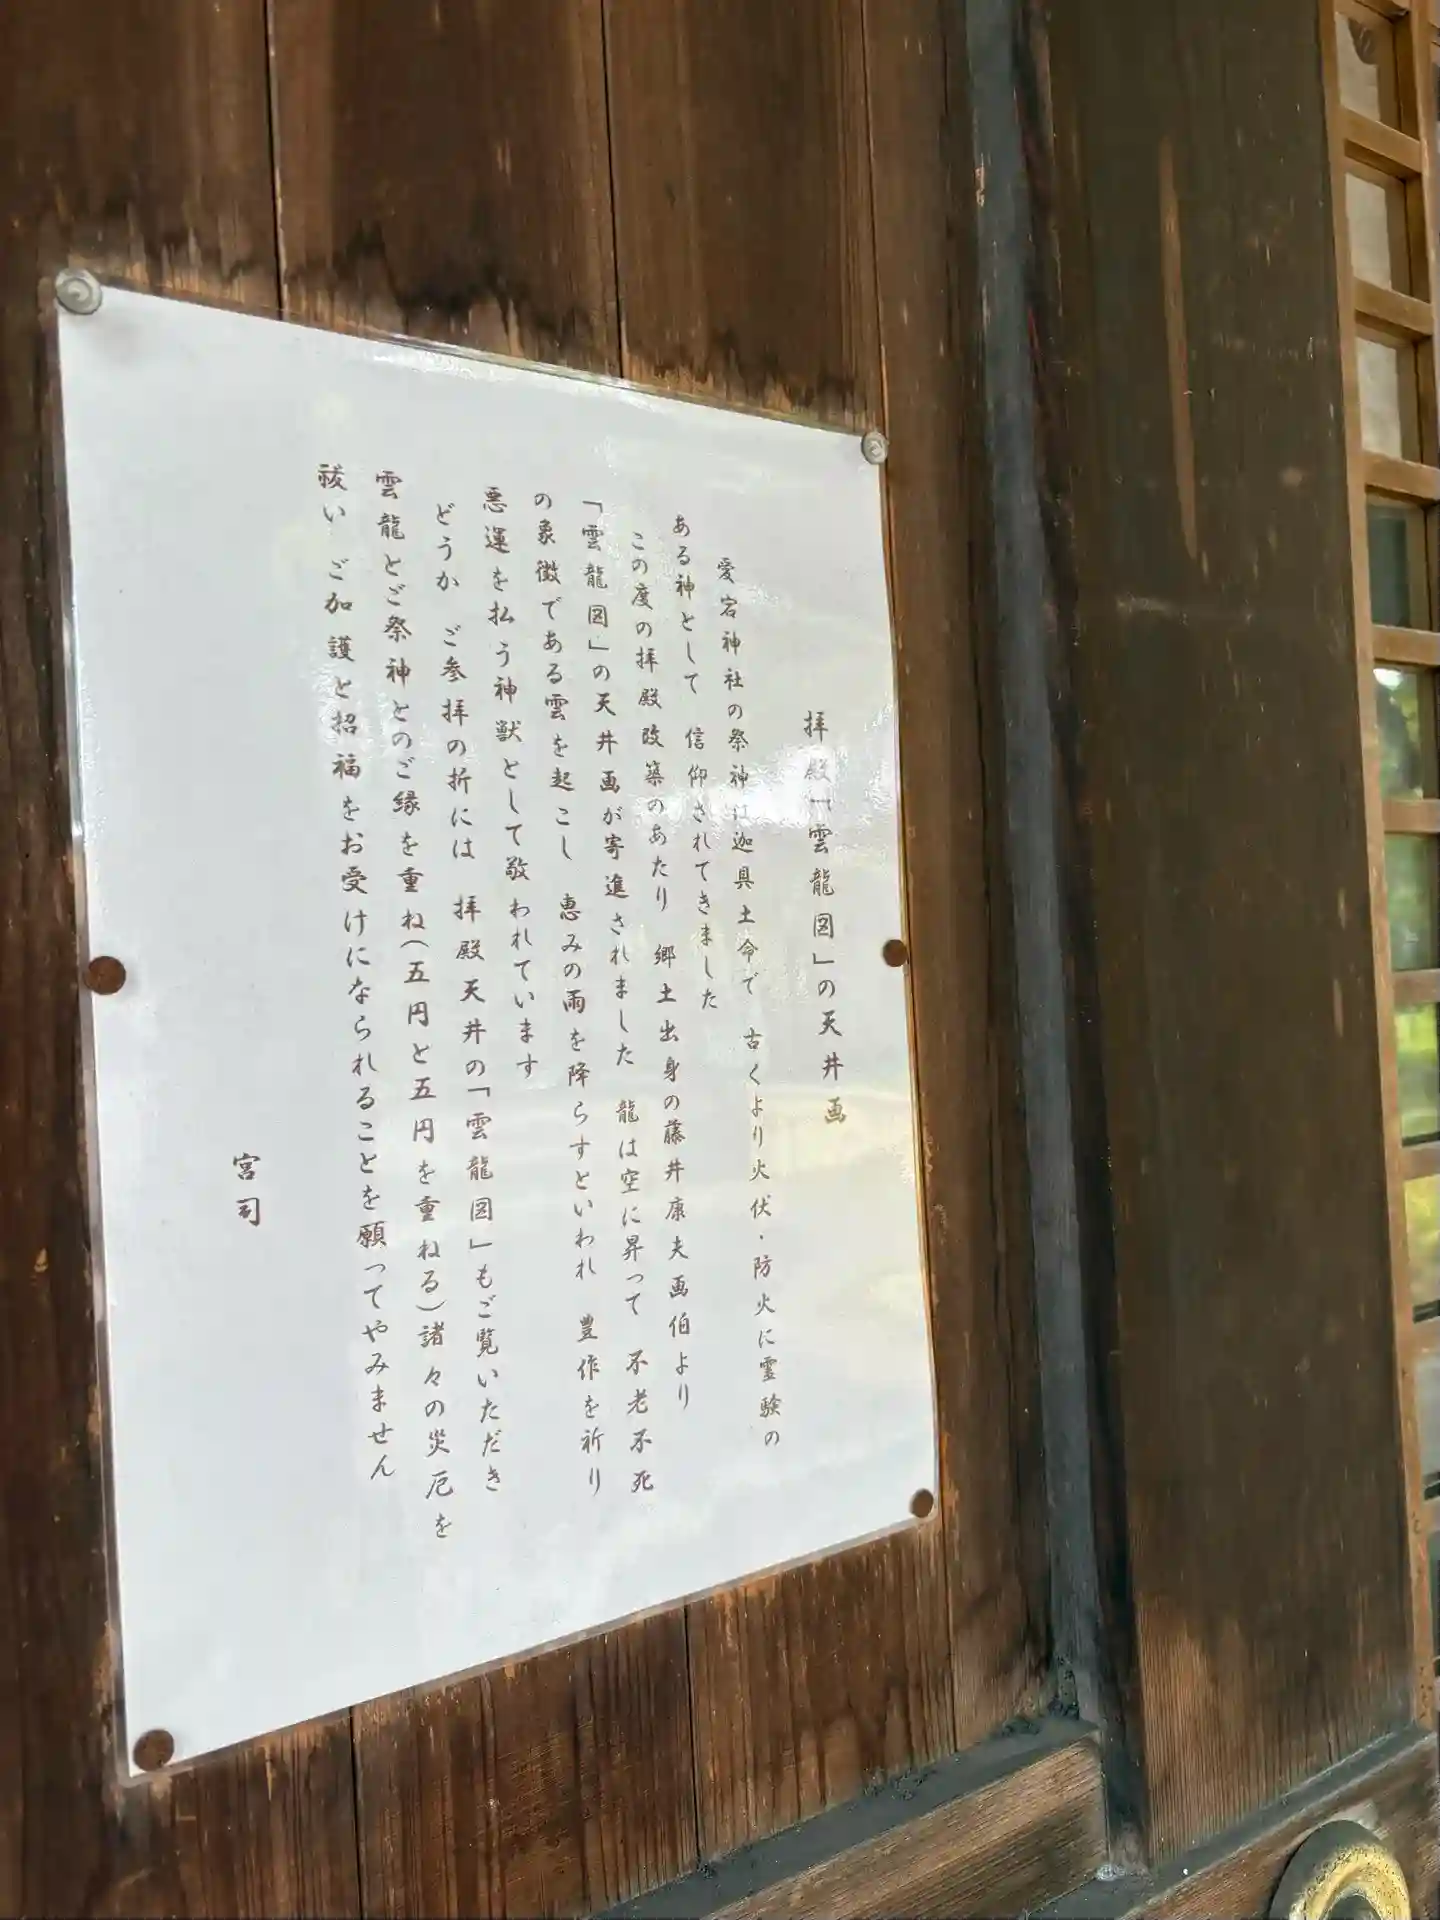 拝殿「雲龍図」の天井画
愛宕神社の祭神は迦具土命で 古くより火伏・防火に霊験の
ある神として 信仰されてきました
この度の拝殿改築のあたり 郷土出身の藤井康夫画伯より
「雲龍図」の天井画が寄進されました 龍は空に昇って 不老不死
の象徴である雲を起こし 恵みの雨を降らすといわれ 豊作を祈り
悪運を払う神獣として敬われています
どうか ご参拝の折には 拝殿天井の「雲龍図」もご覧いただき
雲龍とご祭神とのご縁を重ね(五円と五円を重ねる)諸々の災厄を
祓い ご加護と招福をお受けになられることを願ってやみません
宮司